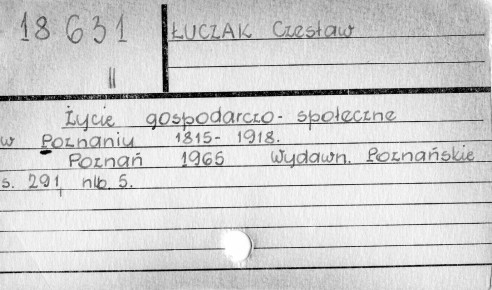 18 631 ŁUCZAK Czesław
II
Życie gospodarczo-społeczne
w Poznaniu 1815-1918.
Poznań 1965 Wydawn. Poznańskie
s. 291, nlb. 5.